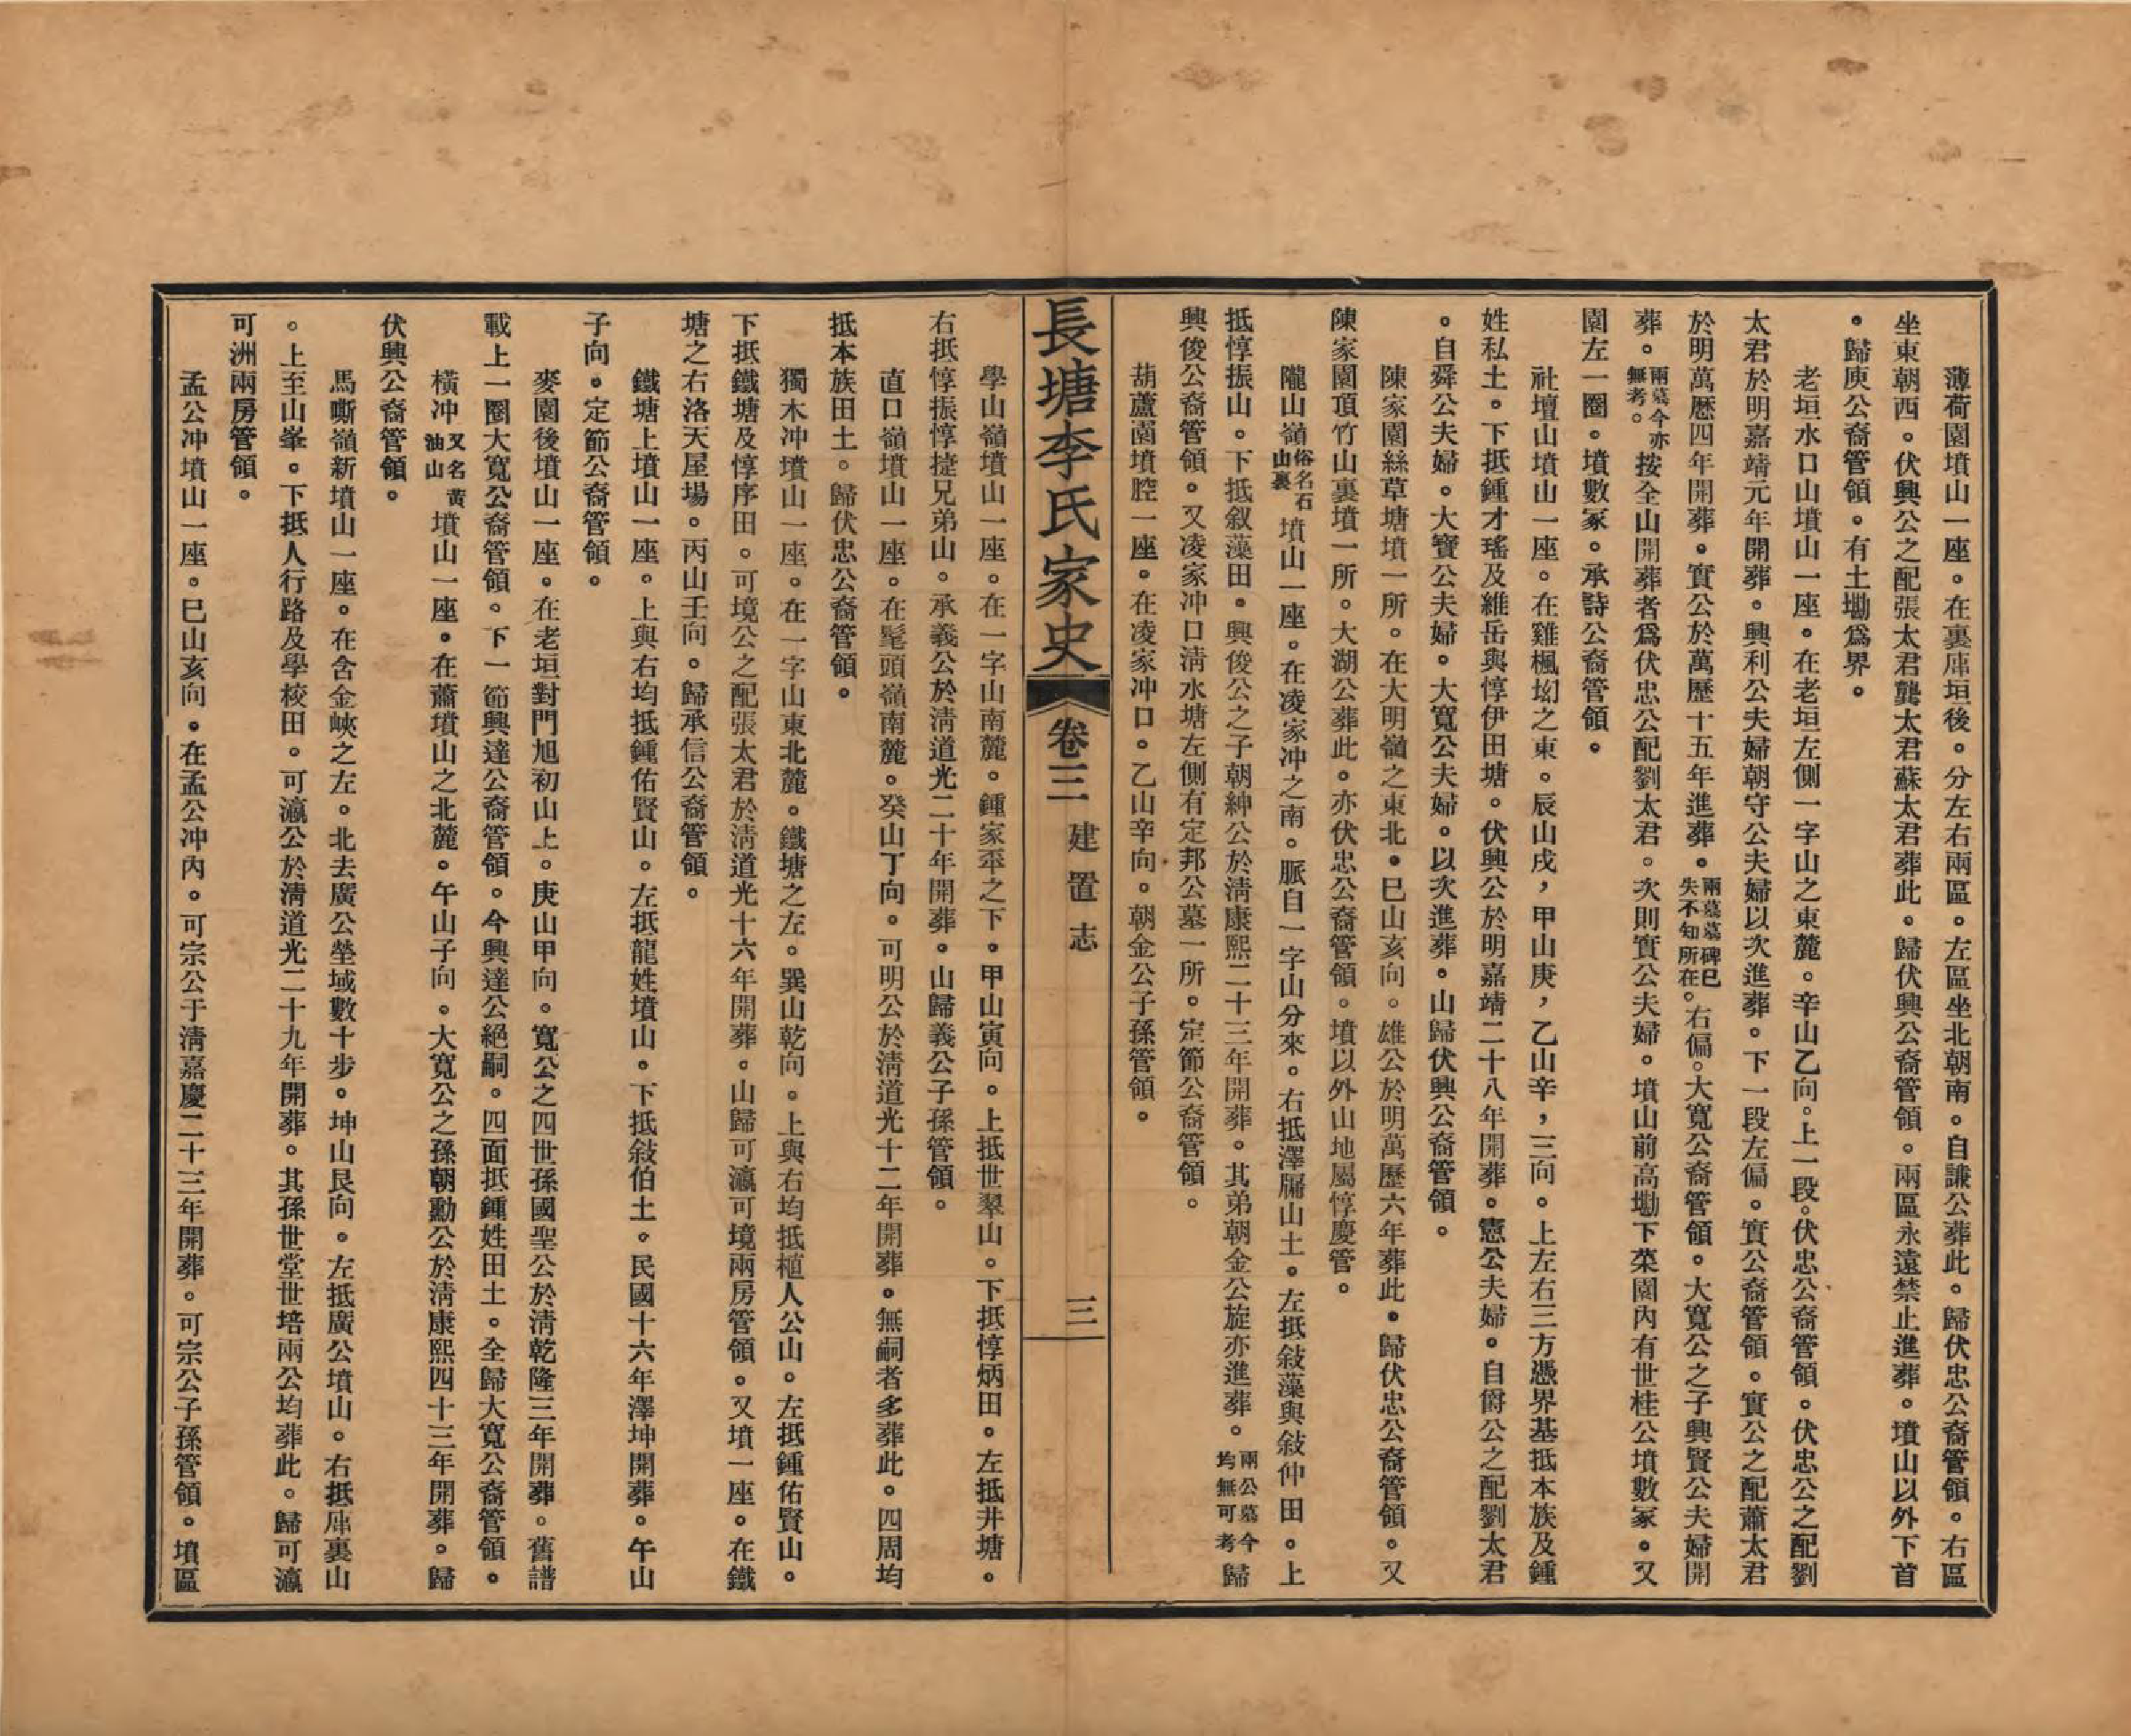 薄荷園墳山一座。在裏庫垣後。分左右兩區。左區坐北朝南。自謙公葬此。歸伏忠公裔管領。右區
坐東朝西。伏興公之配張太君龔太君蘇太君葬此。歸伏興公裔管領。兩區永遠禁止進葬。墳山以外下首
。歸庚公裔管領。有土墈爲界。
老垣水口山墳山一座。在老垣左側一字山之東麓。辛山乙向。上一段。伏忠公裔管領。伏忠公之配劉
太君於明嘉靖元年開葬。興利公夫婦朝守公夫婦以次進葬。下一段左偏。實公裔管領。實公之配蕭太君
於明萬曆四年開葬。實公於萬曆十五年進葬。兩墓墓碑已失不知所在。右偏。大寬公裔管領。大寬公之子興賢公夫婦開
葬。兩墓今亦無考。按全山開葬者爲伏忠公配劉太君。次則實公夫婦。墳山前高墈下菜園內有世桂公墳數冢。又
園左一圈。墳數冢。承詩公裔管領。
社壇山墳山一座。在雞楓坳之東。辰山戌，甲山庚，乙山辛，三向。上左右三方憑界基抵本族及鍾
姓私土。下抵鍾才瑤及維岳與惇伊田塘。伏興公於明嘉靖二十八年開葬。憲公夫婦。自爵公之配劉太君
。自舜公夫婦。大寶公夫婦。大寬公夫婦。以次進葬。山歸伏興公裔管領。
陳家園絲草塘墳一所。在大明嶺之東北。巳山亥向。雄公於明萬曆六年葬此。歸伏忠公裔管領。又
陳家園頂竹山裏墳一所。大湖公葬此。亦伏忠公裔管領。墳以外山地屬惇慶管。
隴山嶺俗名石山裏墳山一座。在凌家冲之南。脈自一字山分來。右抵澤牖山土。左抵敍藻與敍仲田。上
抵惇振山。下抵叙藻田。興俊公之子朝紳公於清康熙二十三年開葬。其弟朝金公旋亦進葬。兩公墓今均無可考歸
興俊公裔管領。又凌家冲口清水塘左側有定邦公墓一所。定節公裔管領。
葫蘆園墳腔一座。在凌家冲口。乙山辛向。朝金公子孫管領。
長塘李氏家史
卷三
建置志
三
學山嶺墳山一座。在一字山南麓。鍾家坖之下。甲山寅向。上抵世翠山。下抵惇炳田。左抵井塘。
右抵惇振惇捷兄弟山。承義公於清道光二十年開葬。山歸義公子孫管領。
直口嶺墳山一座。在髦頭嶺南麓。癸山丁向。可明公於清道光十二年開葬。無嗣者多葬此。四周均
抵本族田土。歸伏忠公裔管領。
獨木冲墳山一座。在一字山東北麓。鐵塘之左。巽山乾向。上與右均抵植人公山。左抵鍾佑賢山。
下抵鐵塘及惇序田。可境公之配張太君於清道光十六年開葬。山歸可瀛可境兩房管領。又墳一座。在鐵
塘之右洛天屋場。丙山壬向。歸承信公裔管領。
鐵塘上墳山一座。上與右均抵鍾佑賢山。左抵龍姓墳山。下抵敍伯土。民國十六年澤坤開葬。午山
子向。定節公裔管領。
麥園後墳山一座。在老垣對門旭初山上。庚山甲向。寬公之四世孫國聖公於清乾隆三年開葬。舊譜
載上一圈大寬公裔管領。下一節興達公裔管領。今興達公絕嗣。四面抵鍾姓田土。全歸大寬公裔管領。
橫冲又名黃油山墳山一座。在蕭墳山之北麓。午山子向。大寬公之孫朝勳公於清康熙四十三年開葬。歸
伏興公裔管領。
馬嘶嶺新墳山一座。在含金峽之左。北去廣公塋域數十步。坤山艮向。左抵廣公墳山。右抵庫裏山
。上至山峯。下抵人行路及學校田。可瀛公於清道光二十九年開葬。其孫世堂世培兩公均葬此。歸可瀛
可洲兩房管領。
孟公冲墳山一座。巳山亥向。在孟公冲內。可宗公于清嘉慶二十三年開葬。可宗公子孫管領。墳區